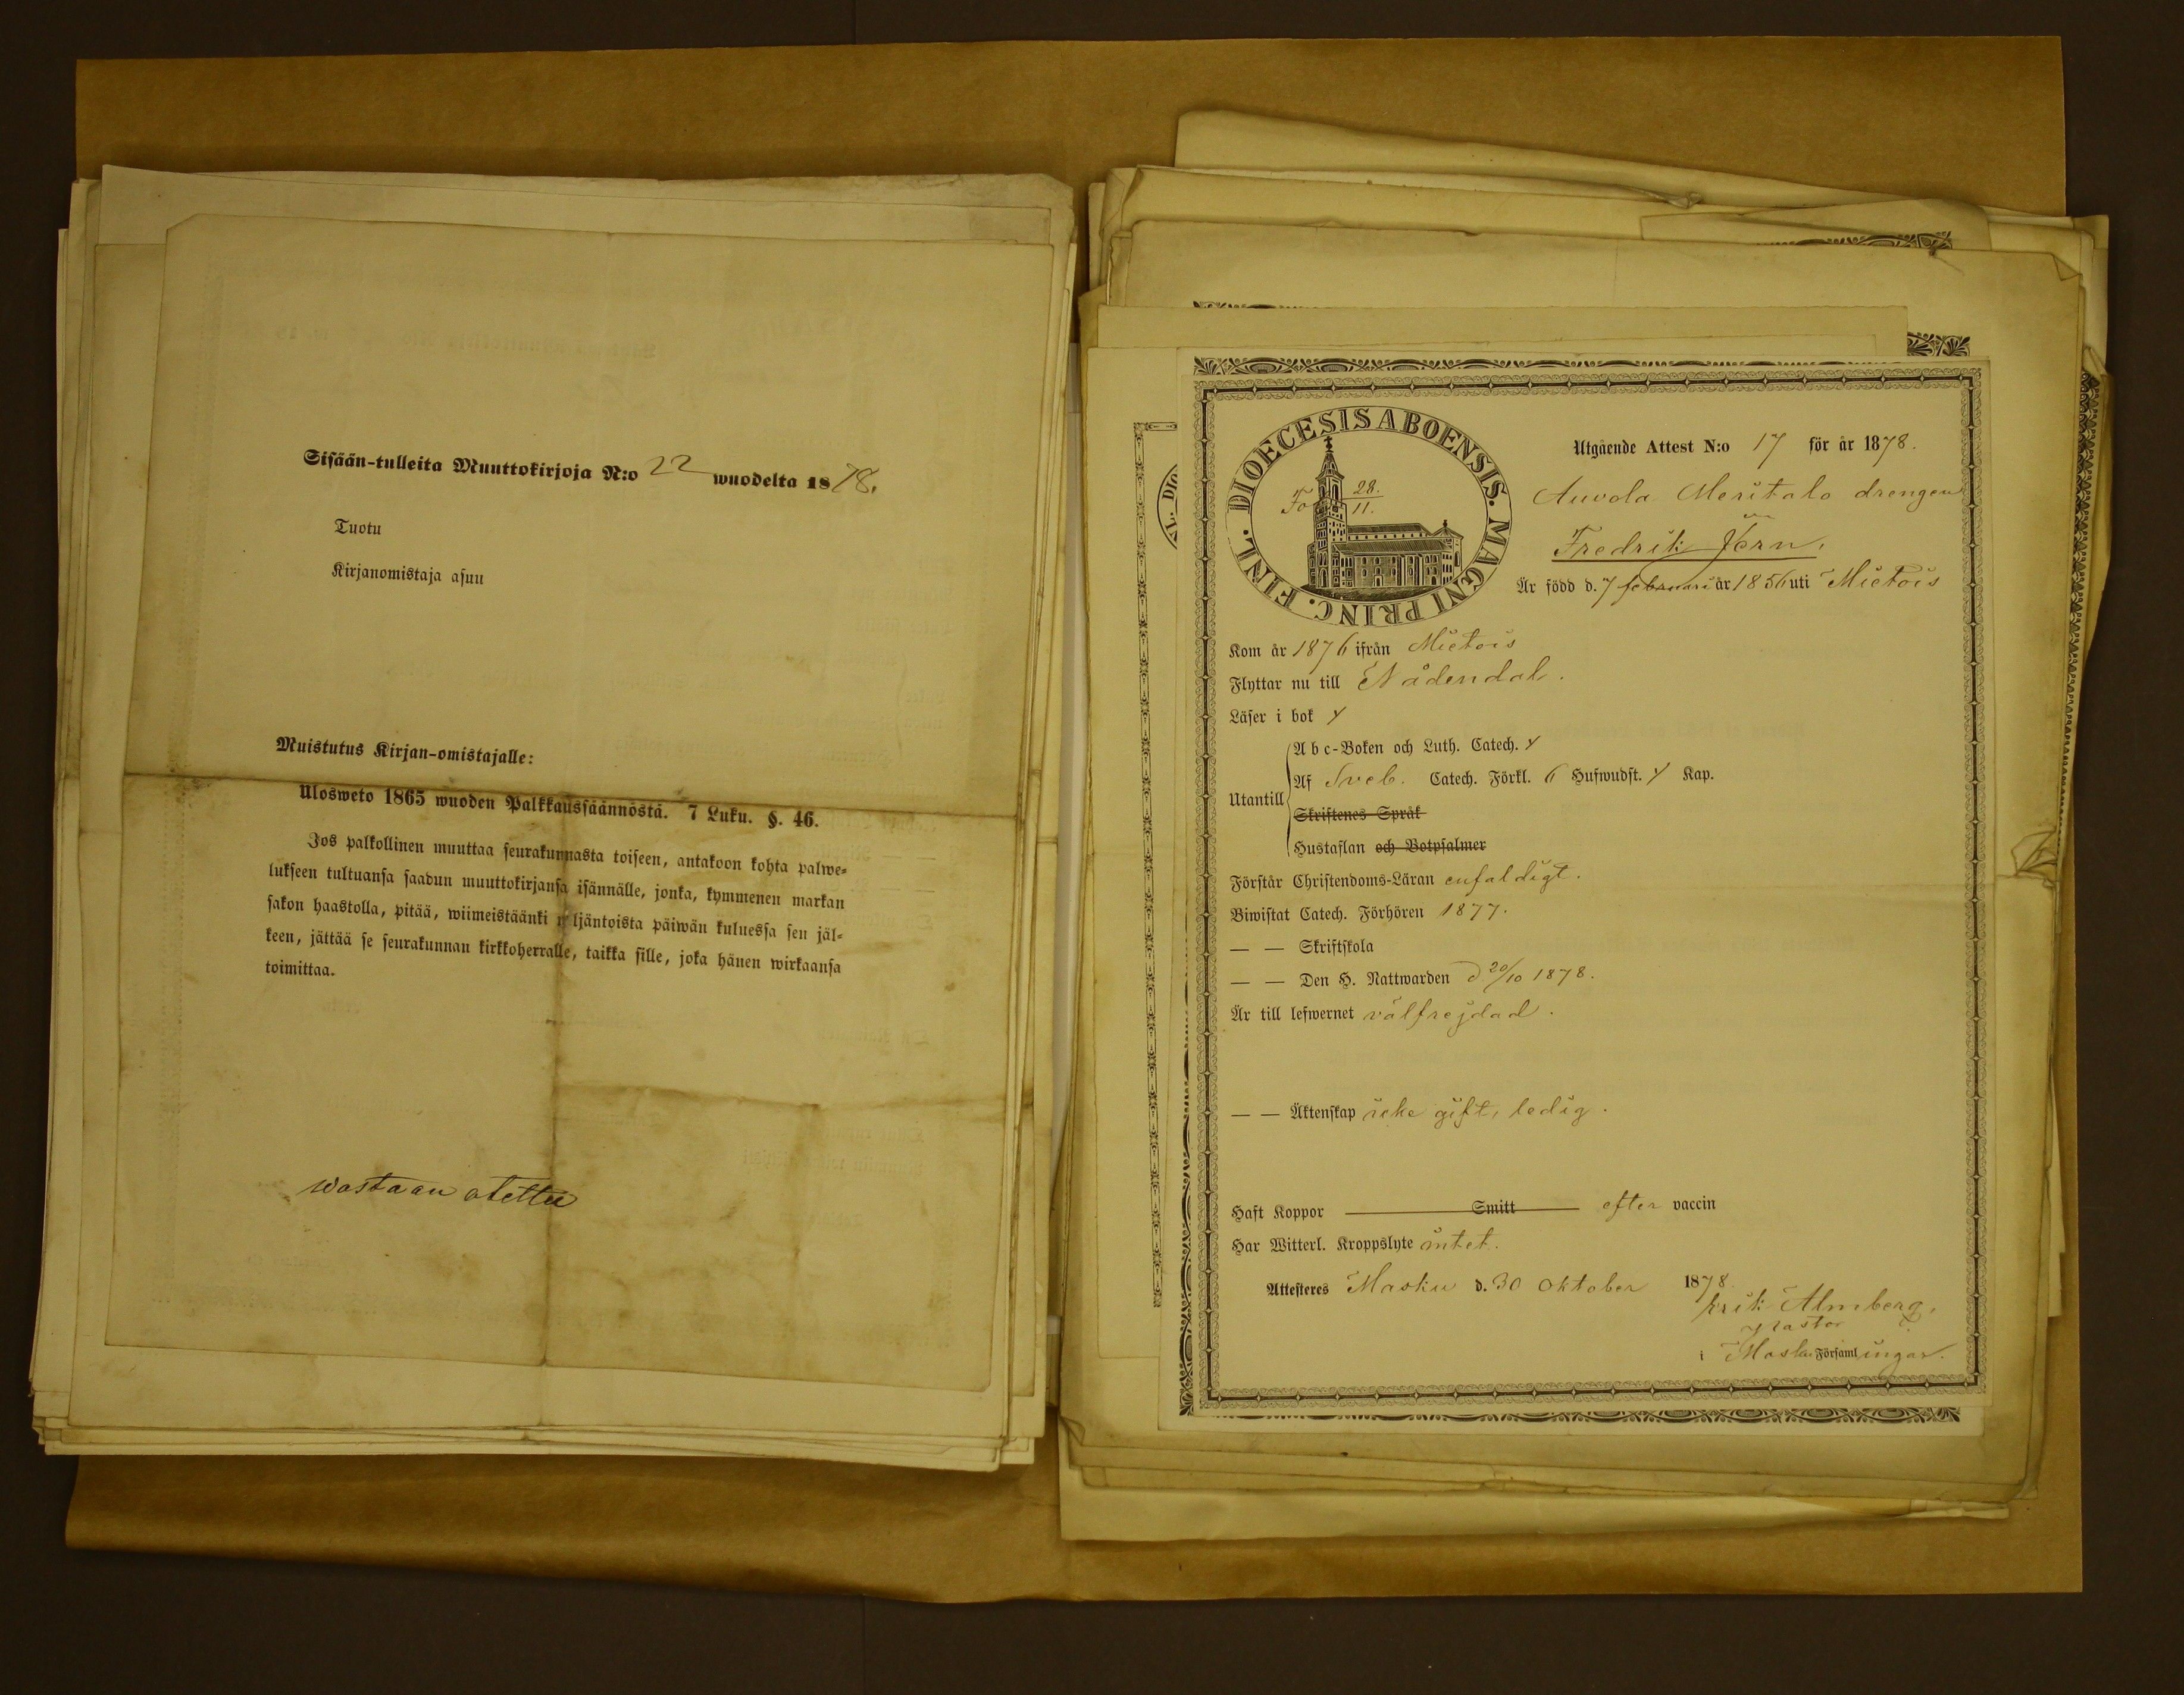 Sisään-tulleita Muuttokirjoja N:o 22 wuodelta 1878.
Tuotu
Kirjanomistaja asuu
Muistutus Kirjan-omistajalle:
Ulosweto 1865 wuoden Palkkaussäännöstä. 7 Luku. §. 46.
Jos palkollinen muuttaa seurakunnasta toiseen, antakoon kohta palwe-
lukseen tultuansa saadun muuttokirjansa isännälle, jonka, kymmenen markan
sakon haastolla, pitää, wiimeistäänki neljäntoista päiwän kuluessa sen jäl-
keen, jättää se seurakunnan kirkkoherralle, taikka sille, joka hänen wirkaansa
toimittaa.
wastaan otettu
L. DIO
FINL. DIOECESIS ABOENSIS. MAGNI PRINC.
Fo 28.
11.
Utgående Attest N:o 17 för år 1878.
Auvola Meritalo drengen
Fredrik Jern,
Är född d. 7 februari år 1856 uti Mietois
Kom år 1876 ifrån Mietois
Flyttar nu till Nådendal.
Läser i bok
Utantill
A b c-Boken och Luth. Catech.
Af Sveb. Catech. Förkl. 6 Hufwudst. Kap.
Skriftenes Språk
Hustaflan och Botpsalmer
Förstår Christendoms-Läran enfaldigt.
Biwistat Catech. Förhören 1877.
— — Skriftskola
— — Den H. Nattwarden d 20/10 1878.
Är till lefwernet välfrejdad.
— — Äktenskap icke gift, ledig.
Haft Koppor Smitt efter vaccin
Har Witterl. Kroppslyte intet.
Attesteres Masku d. 30 Oktober 1878.
Erik Almberg,
Pastor
i Masku Församlingar.